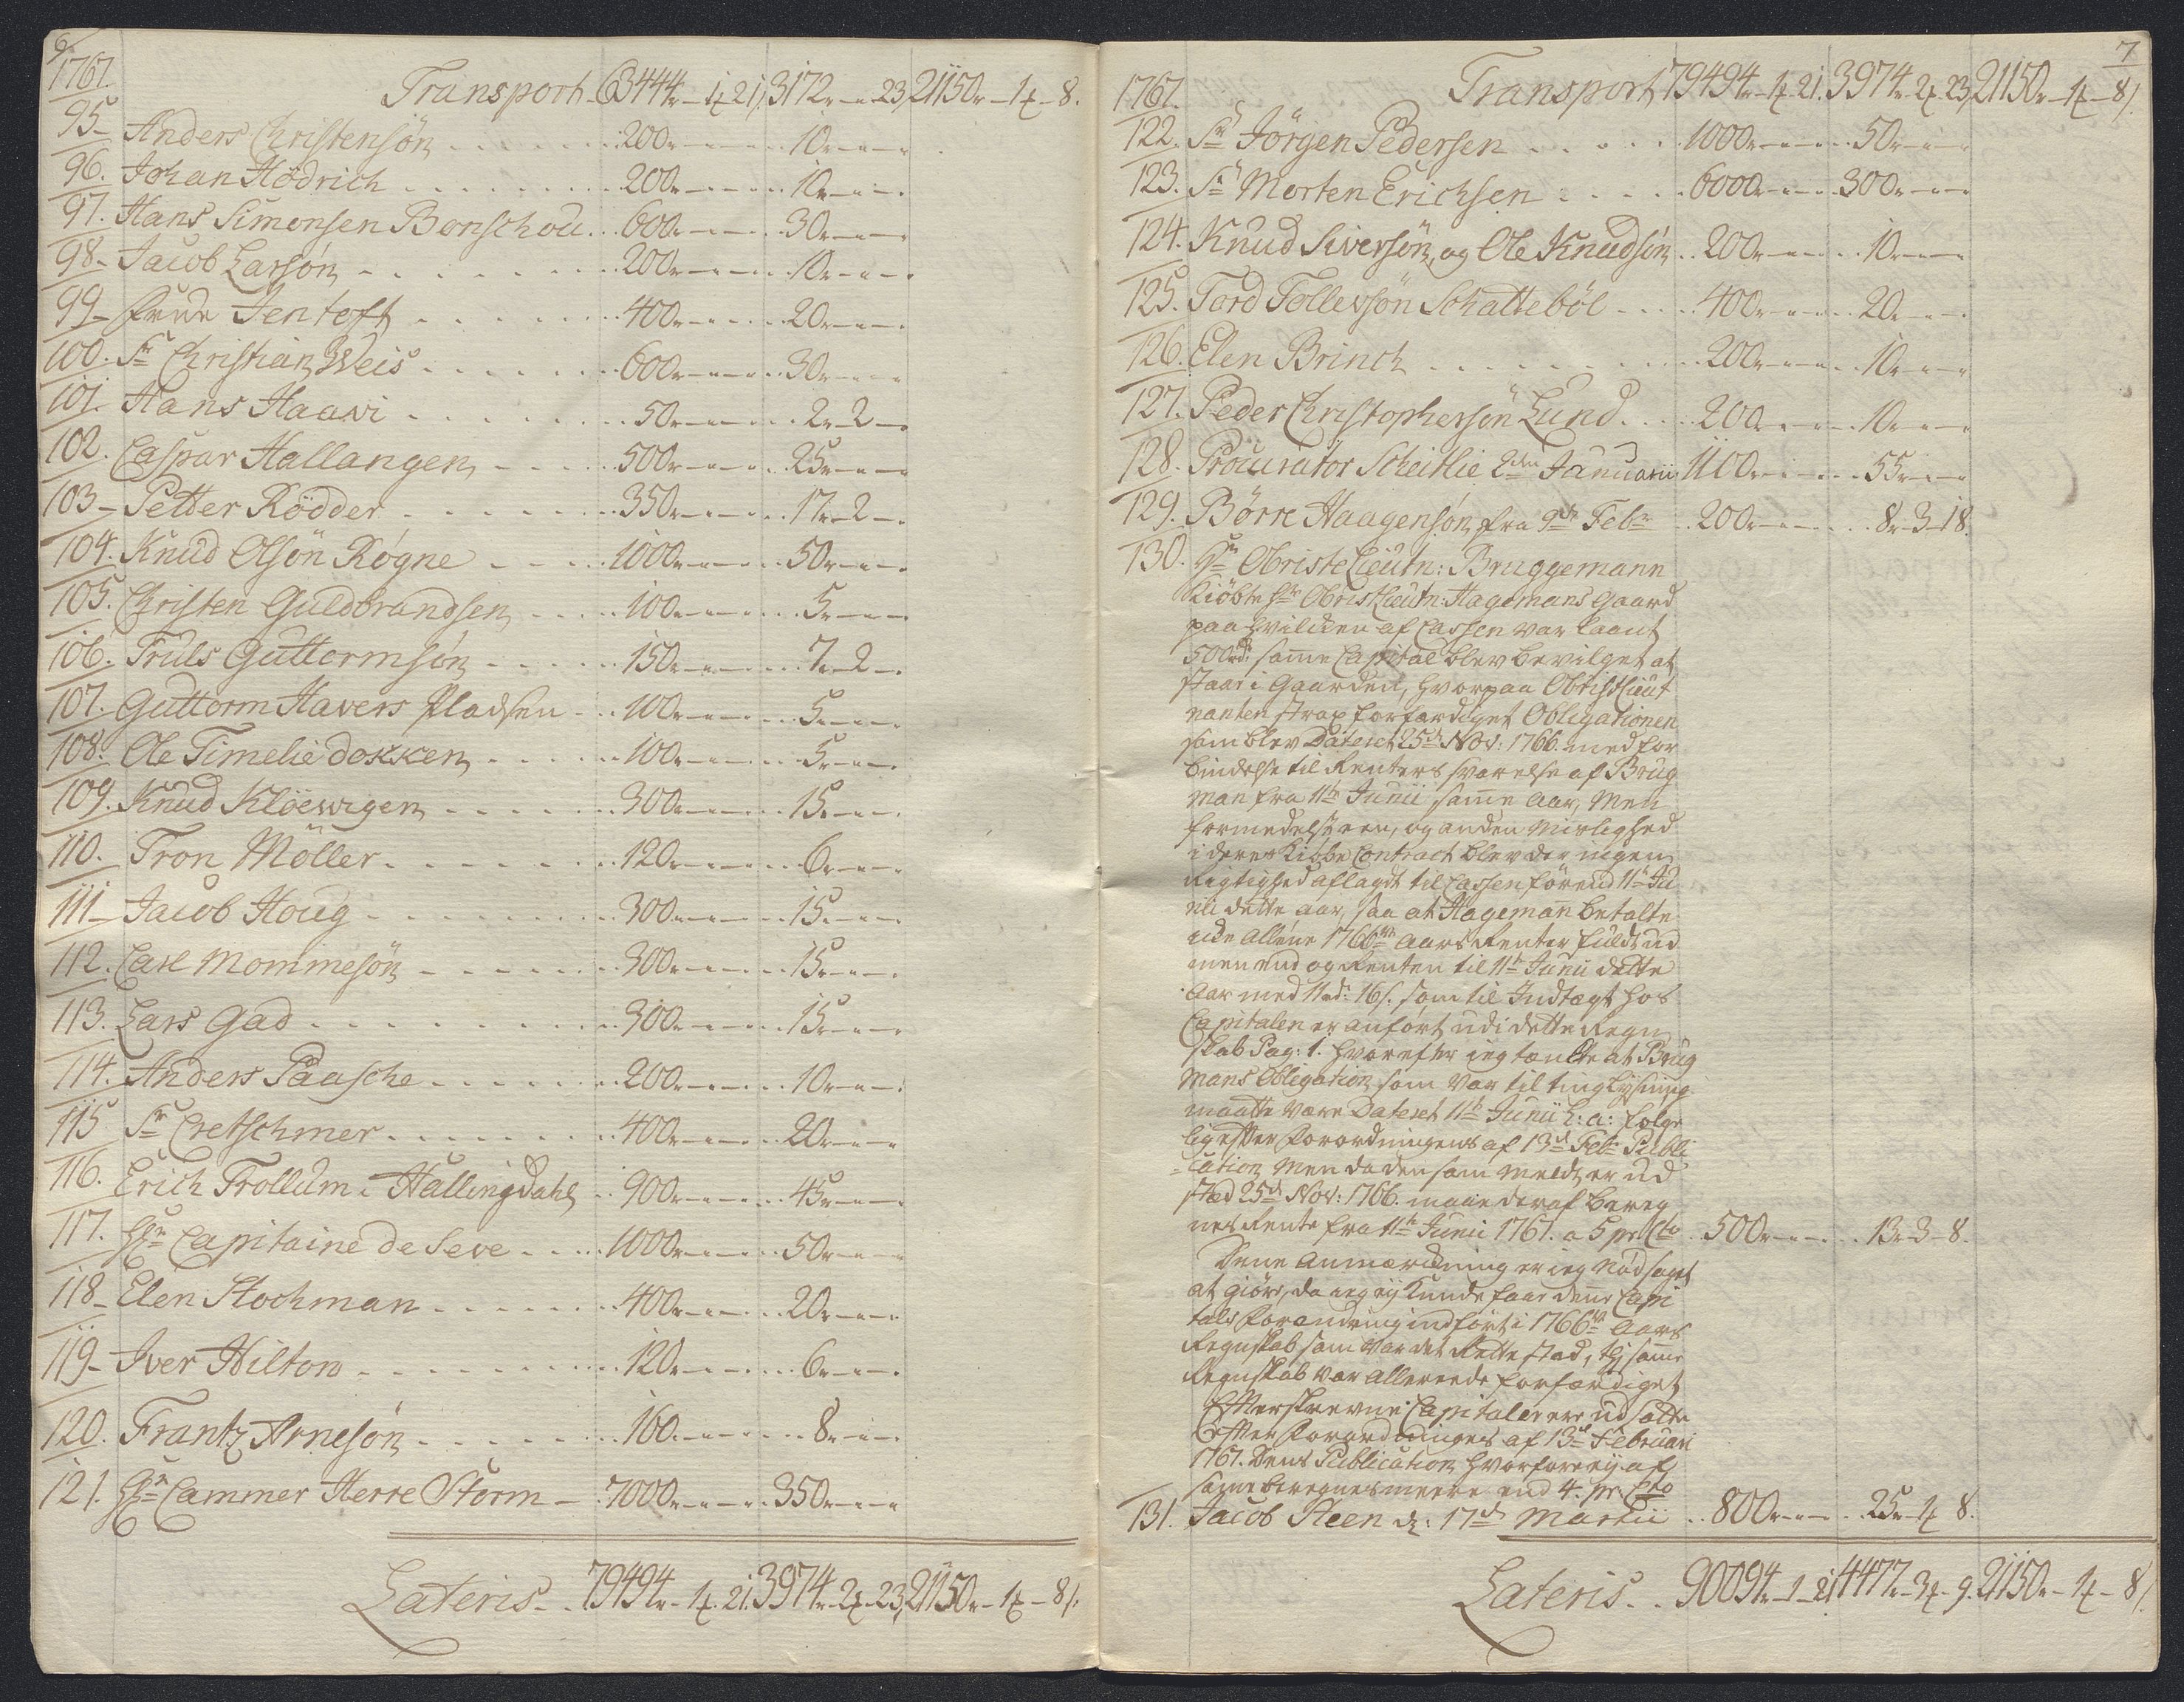 6
1767.
Transport 63444r-1ƺ21, 3172r-"-23, 21150r-1ƺ-8.
95- Anders Christensøn . . . 200r-"-"- 10r-"-"
96. Johan Hødrich . . . 200r-"-"- 10r-"-"-
97. Hans Simonsen Bonschou . . 600r-"-"- 30r-"-"
98- Jacob Larsøn . . . 200r-"-"- 10r-"-"
99- Frue Jentoft . . . 400r-"-"- 20r-"-"
100. Sr Christian Weis . . . 600r-"-"- 30r-"-"
101. Hans Haavi . . . 50r-"-"- 2r-2-"
102. Caspar Hallangen . . . 500r-"-"- 25r-"-"
103- Petter Rödder . . . 350r-"-"- 17r-2-"
104. Knud Olsøn Røgne . . . 1000r-"-"- 50r-"-"
105. Christen Guldbrandsen . . . 100r-"-"- 5r-"-"
106. Truls Guttormsøn . . . 150r-"-"- 7r-2-"
107. Guttorm Havers Pladsen . . 100r-"-"- 5r-"-"
108. Ole Timelie dokken . . . 100r-"-"- 5r-"-"
109. Knud Klöewigen . . . 300r-"-"- 15r-"-"
110. Tron Möller . . . 120r-"-"- 6r-"-"
111- Jacob Houg . . . 300r-"-"- 15r-"-"
112. Carl Mommesøn . . . 300r-"-"- 15r-"-"
113. Lars Gad . . . 300r-"-"- 15r-"-"
114. Anders Paasche . . . 200r-"-"- 10r-"-"
115 Sr Cretschmer . . . 400r-"-"- 20r-"-"
116. Erich Trollum i Hallingdahl . . 900r-"-"- 45r-"-"
117. Hr Capitaine de Seve . . . 1000r-"-"- 50r-"-"
118- Elen Stochman . . . 400r-"-"- 20r-"-"
119- Iver Hilton . . . 120r-"-"- 6r-"-"
120. Frantz Arnesøn . . . 160r-"-"- 8r-"-"
121. Hr Cammer Herre Storm - 7000r-"-"- 350r-"-"
Lateris . . 79494r-1ƺ.21. 3974r-2ƺ-23, 21150r-1ƺ-8ß.
7
1767.
Transport 79494r-1ƺ.21. 3974r-2ƺ.23, 21150r-1ƺ-8ß.
122. Sr Jörgen Pedersen . . . 1000r-"-"- 50r-"-"
123. Sr Morten Erichsen . . . 6000r-"-"- 300r-"-"
124. Knud Siversøn, og Ole Knudsøn . . 200r-"-"- 10r-"-"
125. Tord Tollevsøn Schattebøl . . 400r-"-"- 20r-"-"
126. Elen Brinch . . . 200r-"-"- 10r-"-"
127. Peder Christophersøn Lund . . 200r-"-"- 10r-"-"
128. Procurator Scheitlie 2den Januarii 1100r-"-"- 55r-"-"
129. Börre Haagensøn, fra 9de Febr . . 200r-"-"- 8r-3-18.
130. Hr Obriste Lieutn: Bruggemann
Kiöbte Hr Obristlieutn: Hagemans Gaard
paa hvilcken af Cassen var laant
500rdr samme Capital blev bevilget at
staae i Gaarden, hvorpaa Obristlieut
nanten strax forfærdiget Obligationen
som blev Dateret 25de Nov: 1766. med for
bindelse til Renters svarelse af Brug
man fra 11te Junii samme Aar, Men
formedelst een, og anden Mislighed
i deres Kiøbe Contract blev der ingen
Rigtighed aflagdt til Cassen förend 11te Ju
nii dette aar, saa at Hageman betalte
icke Allene 1766tr Aars Renter fuldt ud
men end og Renten til 11te Junii dette
Aar med 11rdr 16ß. som til Indtægt hos
Capitalen er anført udi dette Regn
skab Pag: 1. hvorefter jeg tænckte at Brug
mans Obligation som var til tinglysning
maatte være Dateret 11te Junii h: a: folge
lig efter Forordningens af 13de Febr Publi
cation Men da den som meldt er ud
sted 25de Nov: 1766. maae deraf bereg
nes Rente fra 11te Junii 1767. a 5 pr Cto . 500r-"-"- 13r-3-8.
Denne Anmærckning er jeg nødsaget
at giöre, da jeg ej kunde faae denne Capi
tals forandring indført i 1766tr Aars
Regnskab som var det Rette sted, thi samme
Regnskab var allereede forfærdiget
Efterskrevne Capitaler ere udsatte
efter Forordninges af 13de Februari
1767. Dens Publication hvorfore ej af
samme beregnes meere end 4. pr. Cto
131. Jacob Steen d: 17de Martii . . 800r-"-"- 25r-1ƺ 8.
Lateris . . 90094r-1-21, 4477r-3ƺ-9. 21150r-1ƺ-8ß.